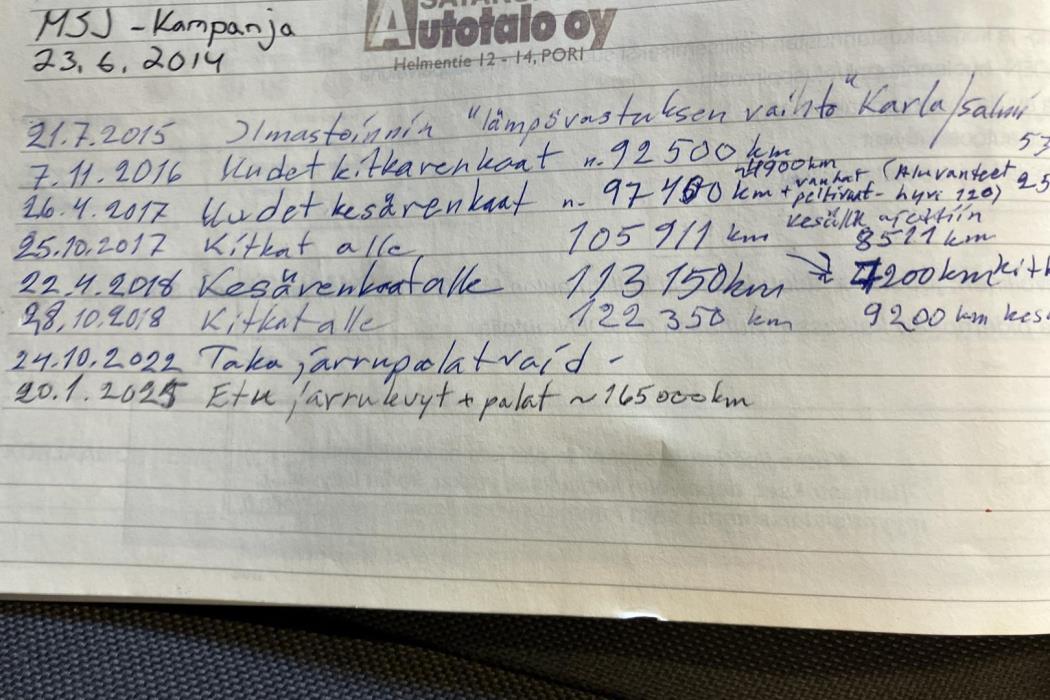 MSJ - Kampanja
23.6.2014
Autotalo oy
Helmentie 12 - 14, PORI
21.7.2015 Ilmastoinnin "lämpövastuksen vaihto" Karla/Salmi
7.11.2016 Uudet kitkarenkaat n. 92 500 km 53
~4900km
26.4.2017 Uudet kesärenkaat n. 97 400 km + vanhat (Aluvanteet 25
+ peltivant- hyvi 120)
kesällä ajettiin
25.10.2017 Kitkat alle 105 911 km 8511 km
22.4.2018 Kesärenkaat alle 113 150 km 7200km kitk
28.10.2018 Kitkat alle 122 350 km 9200 km kes
24.10.2022 Taka jarrupalat vaid -
20.1.2025 Etu jarrulevyt + palat ~165000km